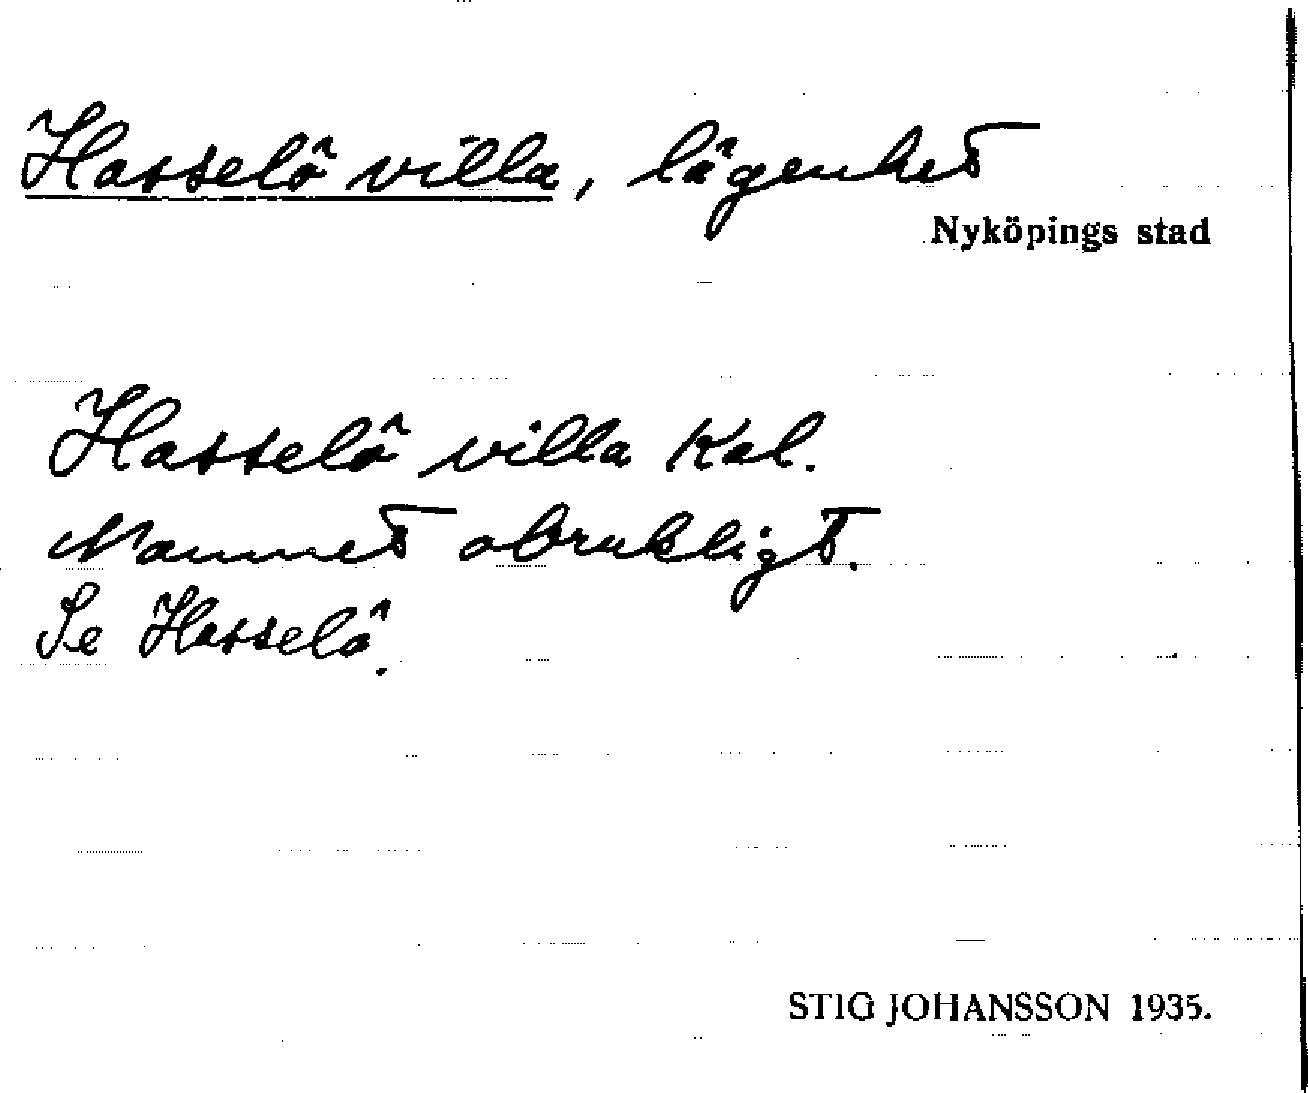 Hasselö villa, lägenhet
Nyköpings stad
Hasselö villa Kal.
Namnet obrukligt.
Se Hasselö.
STIG JOHANSSON 1935.